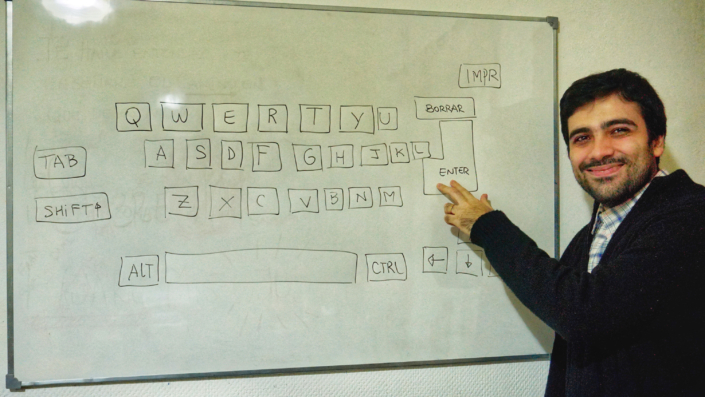 IMPR
Q W E R T Y U BORRAR
TAB A S D F G H J K L
ENTER
SHIFT Z X C V B N M
ALT CTRL ← ↓